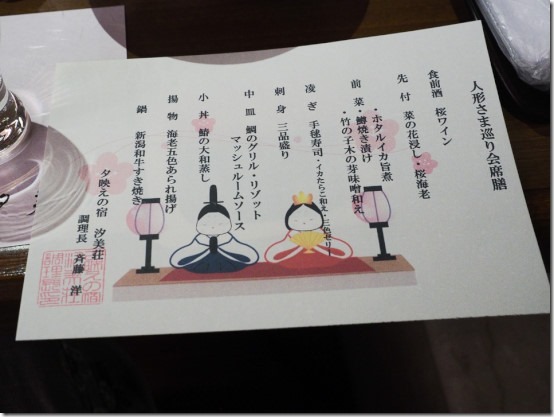 人形さま巡り会席膳
食前酒　桜ワイン
先付　菜の花浸し・桜海老
・ホタルイカ旨煮
前菜・鱒焼き漬け
・竹の子木の芽味噌和え
凌ぎ　手毬寿司・イカたらこ和え・三色ゼリー
刺身　三品盛り
中皿　鯛のグリル・リゾット
マッシュルームソース
小丼　鰆の大和蒸し
揚物　海老五色あられ揚げ
鍋　新潟和牛すき焼き
夕映えの宿　汐美荘
調理長　斉藤　洋